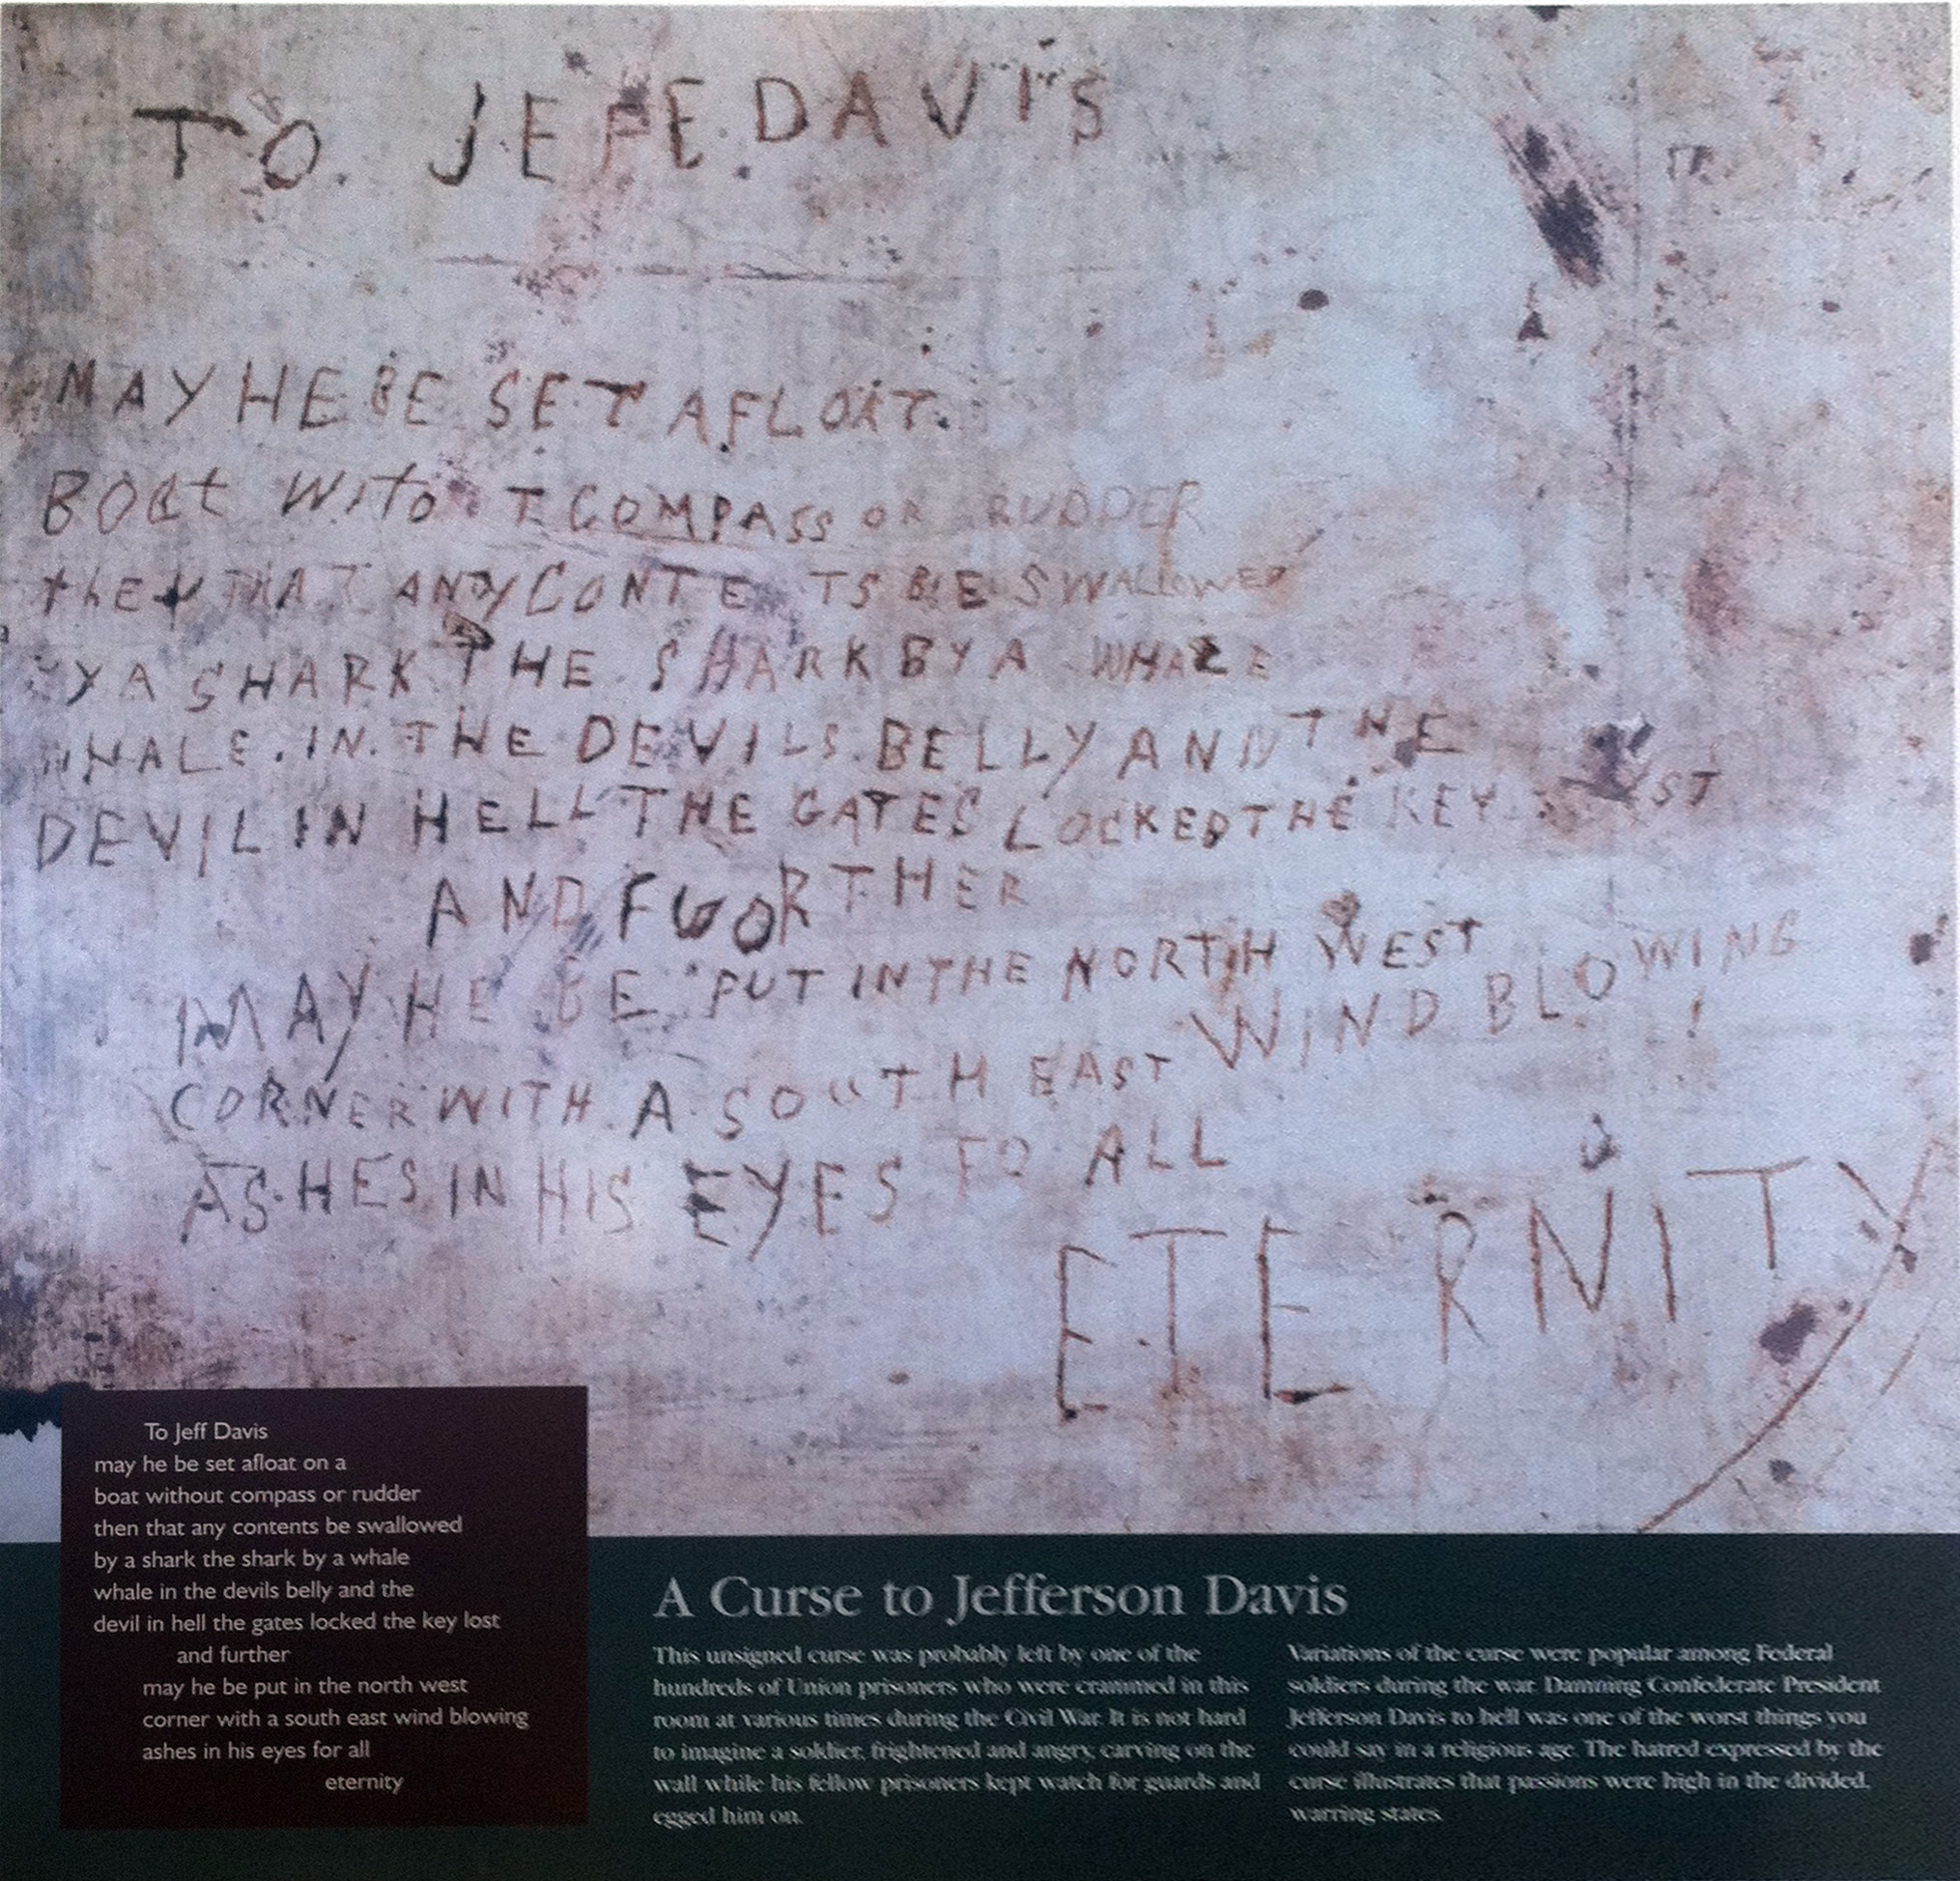 TO. JEFF. DAVIS
MAY HE BE SET AFLOAT.
BOat WitO T COMPASS OR RUDDER
thEN THAT ANY CONTE TS BE SWALLOWED
YA SHARK THE SHARK BY A WHALE
WHALE. IN. THE DEVILS. BELLY AND THE
DEVIL IN HELL THE GATES LOCKED THE KEY ST
AND FUORTHER
MAY HE BE PUT IN THE NORTH WEST
CORNER WITH A SOUTH EAST WIND BLOWING
ASHES IN HIS EYES FO ALL
ETERNITY
To Jeff Davis
may he be set afloat on a
boat without compass or rudder
then that any contents be swallowed
by a shark the shark by a whale
whale in the devils belly and the
devil in hell the gates locked the key lost
and further
may he be put in the north west
corner with a south east wind blowing
ashes in his eyes for all
eternity
A Curse to Jefferson Davis
This unsigned curse was probably left by one of the
hundreds of Union prisoners who were crammed in this
room at various times during the Civil War. It is not hard
to imagine a soldier, frightened and angry, carving on the
wall while his fellow prisoners kept watch for guards and
egged him on.
Variations of the curse were popular among Federal
soldiers during the war. Damning Confederate President
Jefferson Davis to hell was one of the worst things you
could say in a religious age. The hatred expressed by the
curse illustrates that passions were high in the divided,
warring states.